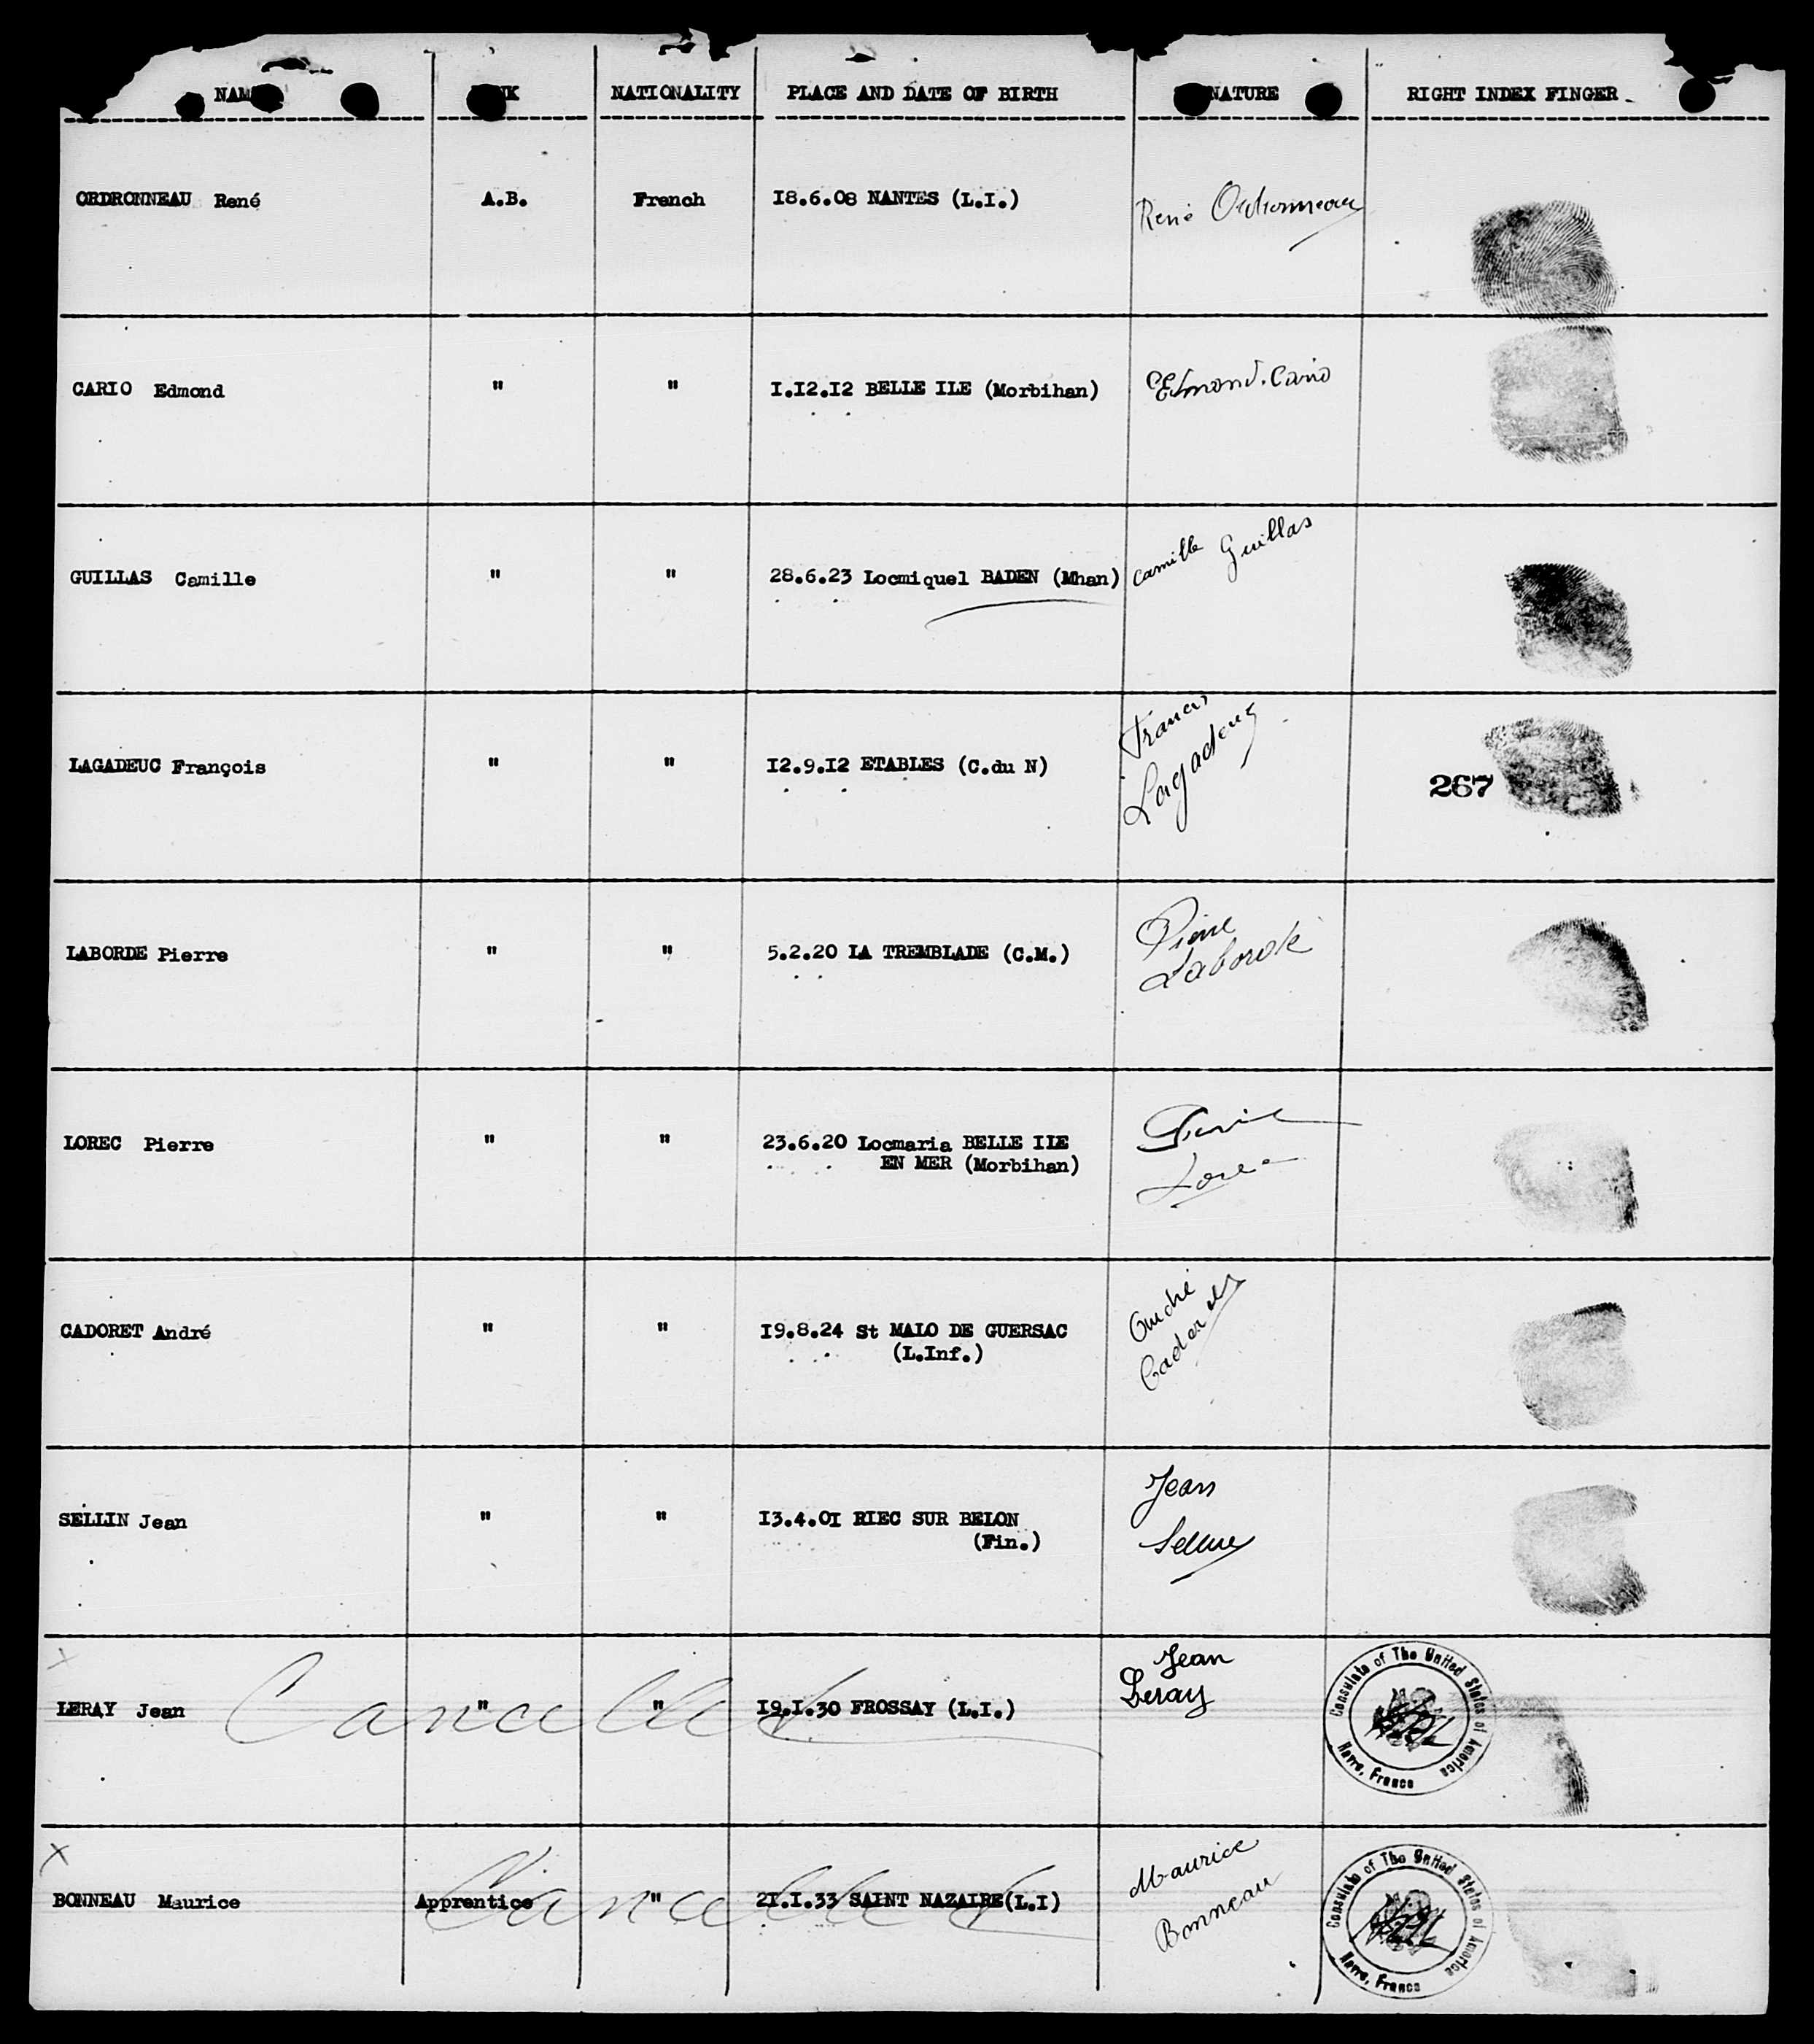 NAME RANK NATIONALITY PLACE AND DATE OF BIRTH SIGNATURE RIGHT INDEX FINGER
ORDRONNEAU René A.B. French 18.6.08 NANTES (L.I.) René Ordronneau
CARIO Edmond " " I.I2.I2 BELLE ILE (Morbihan) Edmond.Cario
GUILLAS Camille " " 28.6.23 Locmiquel BADEN (Mhan) Camille Guillas
LAGADEUC François " " I2.9.I2 ETABLES (C.du N) Francis
Lagadeuc
267
LABORDE Pierre " " 5.2.20 LA TREMBLADE (C.M.) Pierre
Laborde
LOREC Pierre " " 23.6.20 Locmaria BELLE ILE Pierre
EN MER (Morbihan) Lorec
CADORET André " " I9.8.24 St MALO DE GUERSAC André
(L.Inf.) Cadoret
SELLIN Jean " " I3.4.0I RIEC SUR BELON Jean
(Fin.) Sellin
x
LERAY Jean " " I9.I.30 FROSSAY (L.I.) Jean
Leray
Cancelled
Consulate of The United States of America
Havre, France
x
BONNEAU Maurice Apprentice " 2I.I.33 SAINT NAZAIRE(L.I) Maurice
Bonneau
Cancelled
Consulate of The United States of America
Havre, France